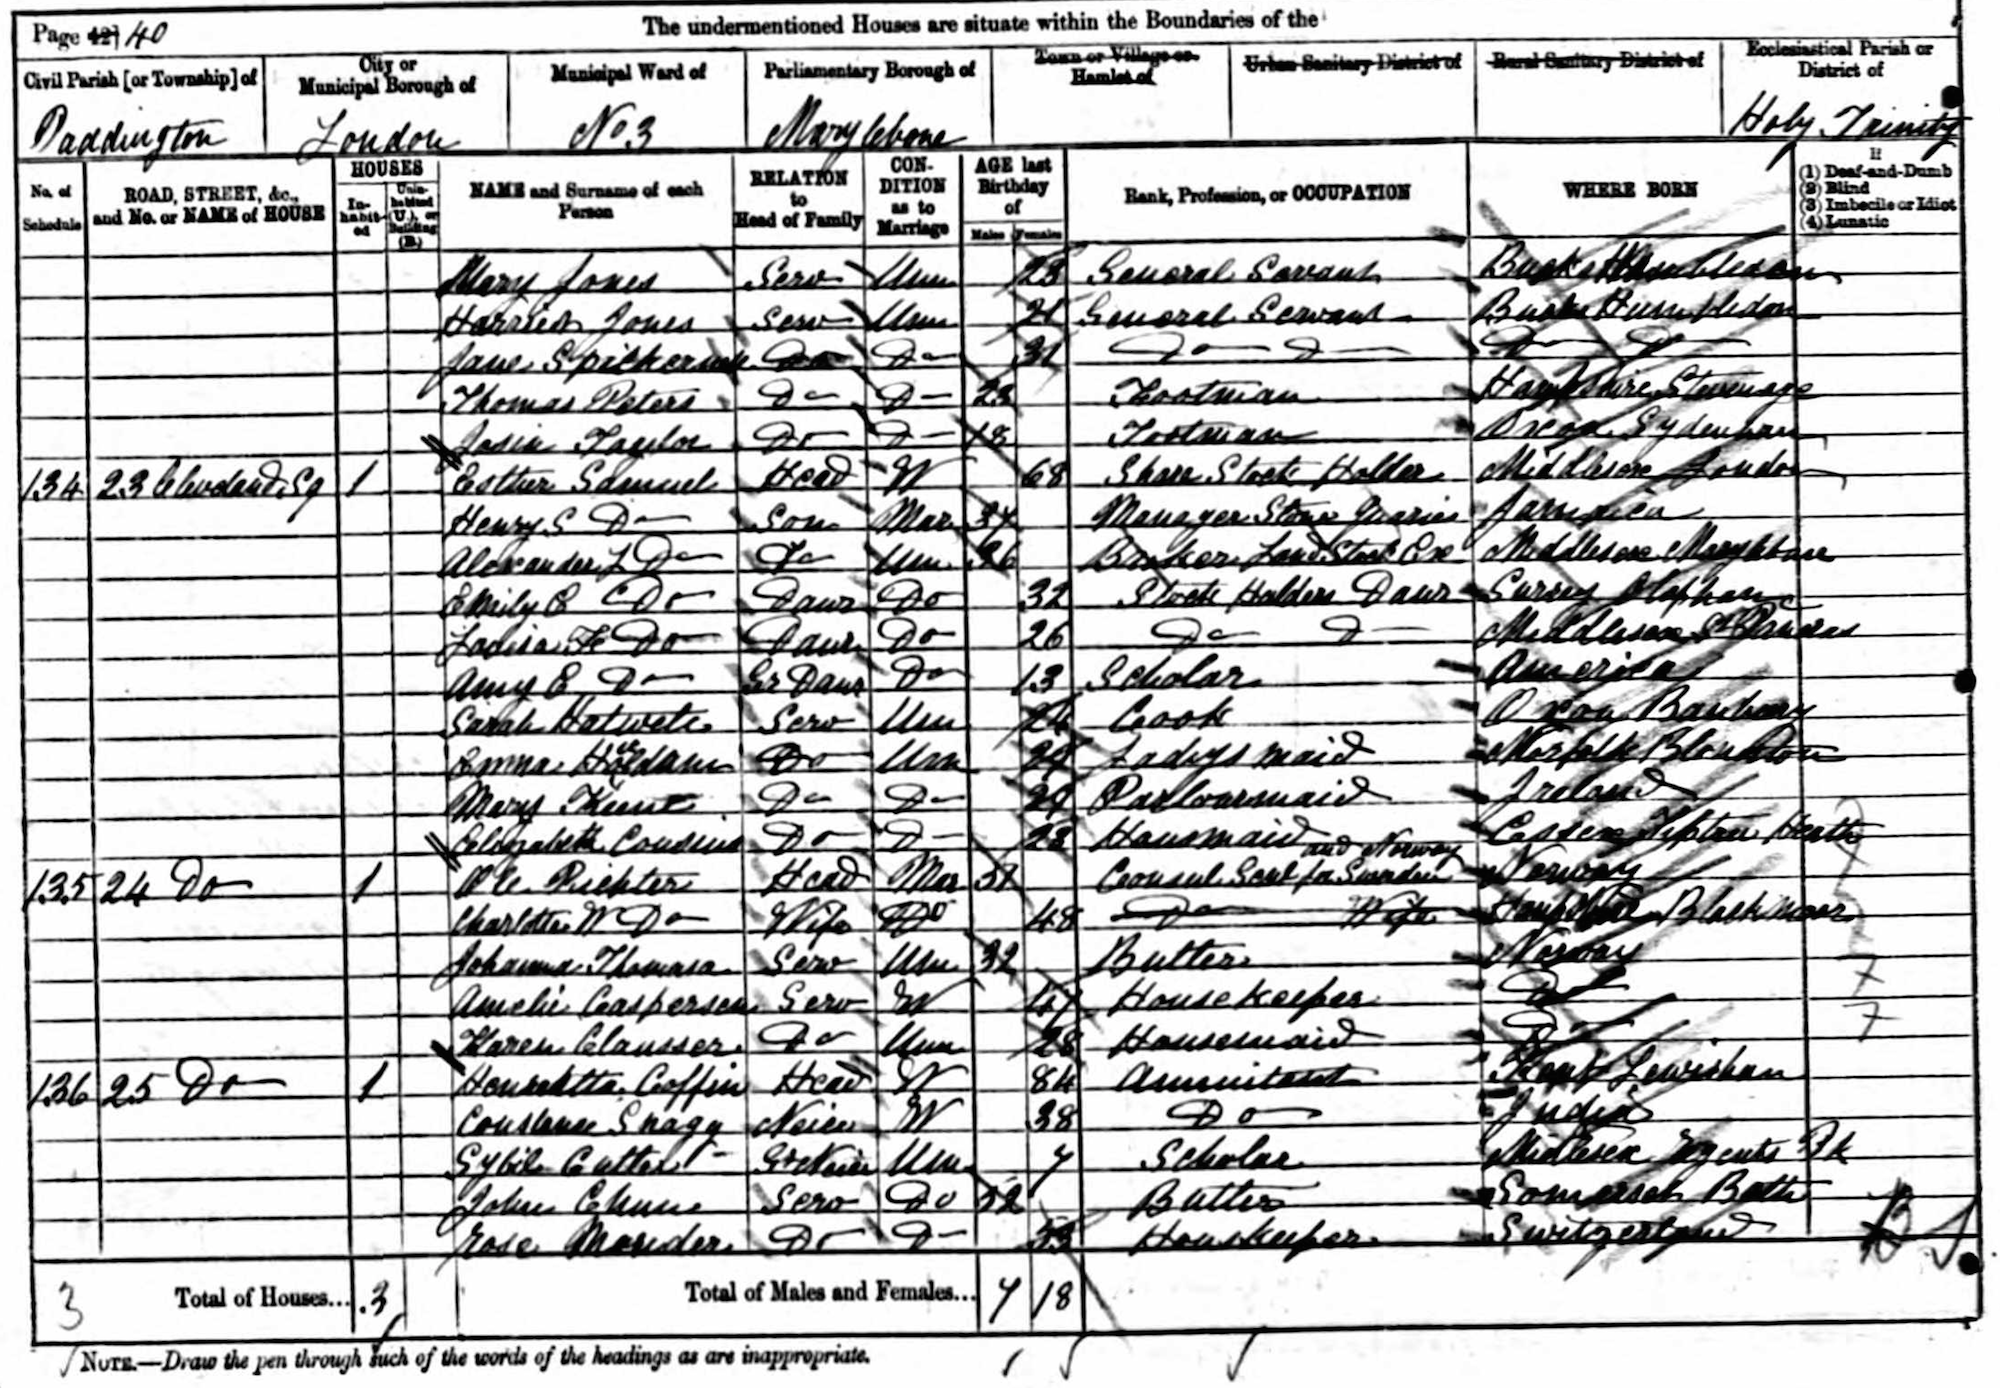 Page 42] 40
The undermentioned Houses are situate within the Boundaries of the
Civil Parish [or Township] of
City or Municipal Borough of
Municipal Ward of
Parliamentary Borough of
Town or Village or Hamlet of
Urban Sanitary District of
Rural Sanitary District of
Ecclesiastical Parish or District of
Paddington London No 3 Marylebone Holy Trinity
No. of Schedule
ROAD, STREET, &c., and No. or NAME of HOUSE
HOUSES
In-habit-ed
Unin-habited (U.), or Building (B.)
NAME and Surname of each Person
RELATION to Head of Family
CON-DITION as to Marriage
AGE last Birthday of
Males Females
Rank, Profession, or OCCUPATION
WHERE BORN
If
(1) Deaf-and-Dumb
(2) Blind
(3) Imbecile or Idiot
(4) Lunatic
Mary Jones Serv Unm General Servant Bucks
Harriet Jones Serv Unm 21 General Servant Bucks
Jane Do Do 31 Do Do Do Do
Thomas Peters Do Do 23 Footman Hampshire Stevenage
Taylor Do Do 18 Footman Oxon Sydenham
134 23 Cleveland Sq 1 Esther Samuel Head W 68 Share Stock Holder Middlesex London
Henry S Do Son Mar Manager Stone Quarries Jamaica
Alexander L Do Do Unm 36 Broker Stock Exe Middlesex Marylebone
Emily E Do Daur Do 32 Stock Holders Daur Surrey Clapham
Louisa Do Daur Do 26 Do Do Middlesex St Pancras
Amy E Do Gr Daur Do 13 Scholar America
Sarah Serv Unm Cook Oxon Banbury
Emma Do Unm Ladys maid Norfolk
Mary Do Do 29 Parlourmaid Ireland
Elizabeth Cousins Do Do 23 Housmaid Essex Tiptree Heath
135 24 Do 1 Ole Richter Head Mar 51 Consul Genl for Sweeden and Norway Norway
Charlotte W Do Wife Do 48 Do Wife Blackmoor
Johanna Serv Unm 32 Butler Norway
Amelie Caspersen Serv W 47 Housekeeper Do
Karen Do Unm 28 Housemaid Do
136 25 Do 1 Henrietta Coffin Head W 84 Annuitant Kent Lewisham
Constance Neice W 38 Do India
Sybil Gr Neice Unm 7 Scholar Regents Pk
John Serv Do 52 Butler Somerset Bath
Rose Do Do 53 Houskeeper Switzerland
3 Total of Houses... 3 Total of Males and Females... 7 18
NOTE.—Draw the pen through such of the words of the headings as are inappropriate.